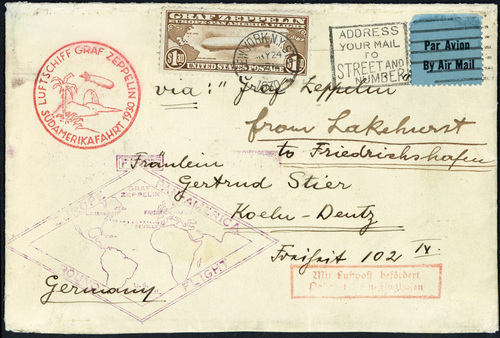 LUFTSCHIFF GRAF ZEPPELIN
SÜDAMERIKAFAHRT 1930
GRAF ZEPPELIN
EUROPE-PAN AMERICA FLIGHT
$1.30
$1
UNITED STATES POSTAGE
NEW YORK, N.Y.
1930
ADDRESS
YOUR MAIL
TO
STREET AND
NUMBER
Par Avion
By Air Mail
via: "Graf Zeppelin"
from Lakehurst
to Friedrichshafen
Fräulein
Gertrud Stier
Koeln-Deutz
Freiheit 102 IV.
Germany
GRAF
ZEPPELIN
FLIGHT
Mit Luftpost befördert